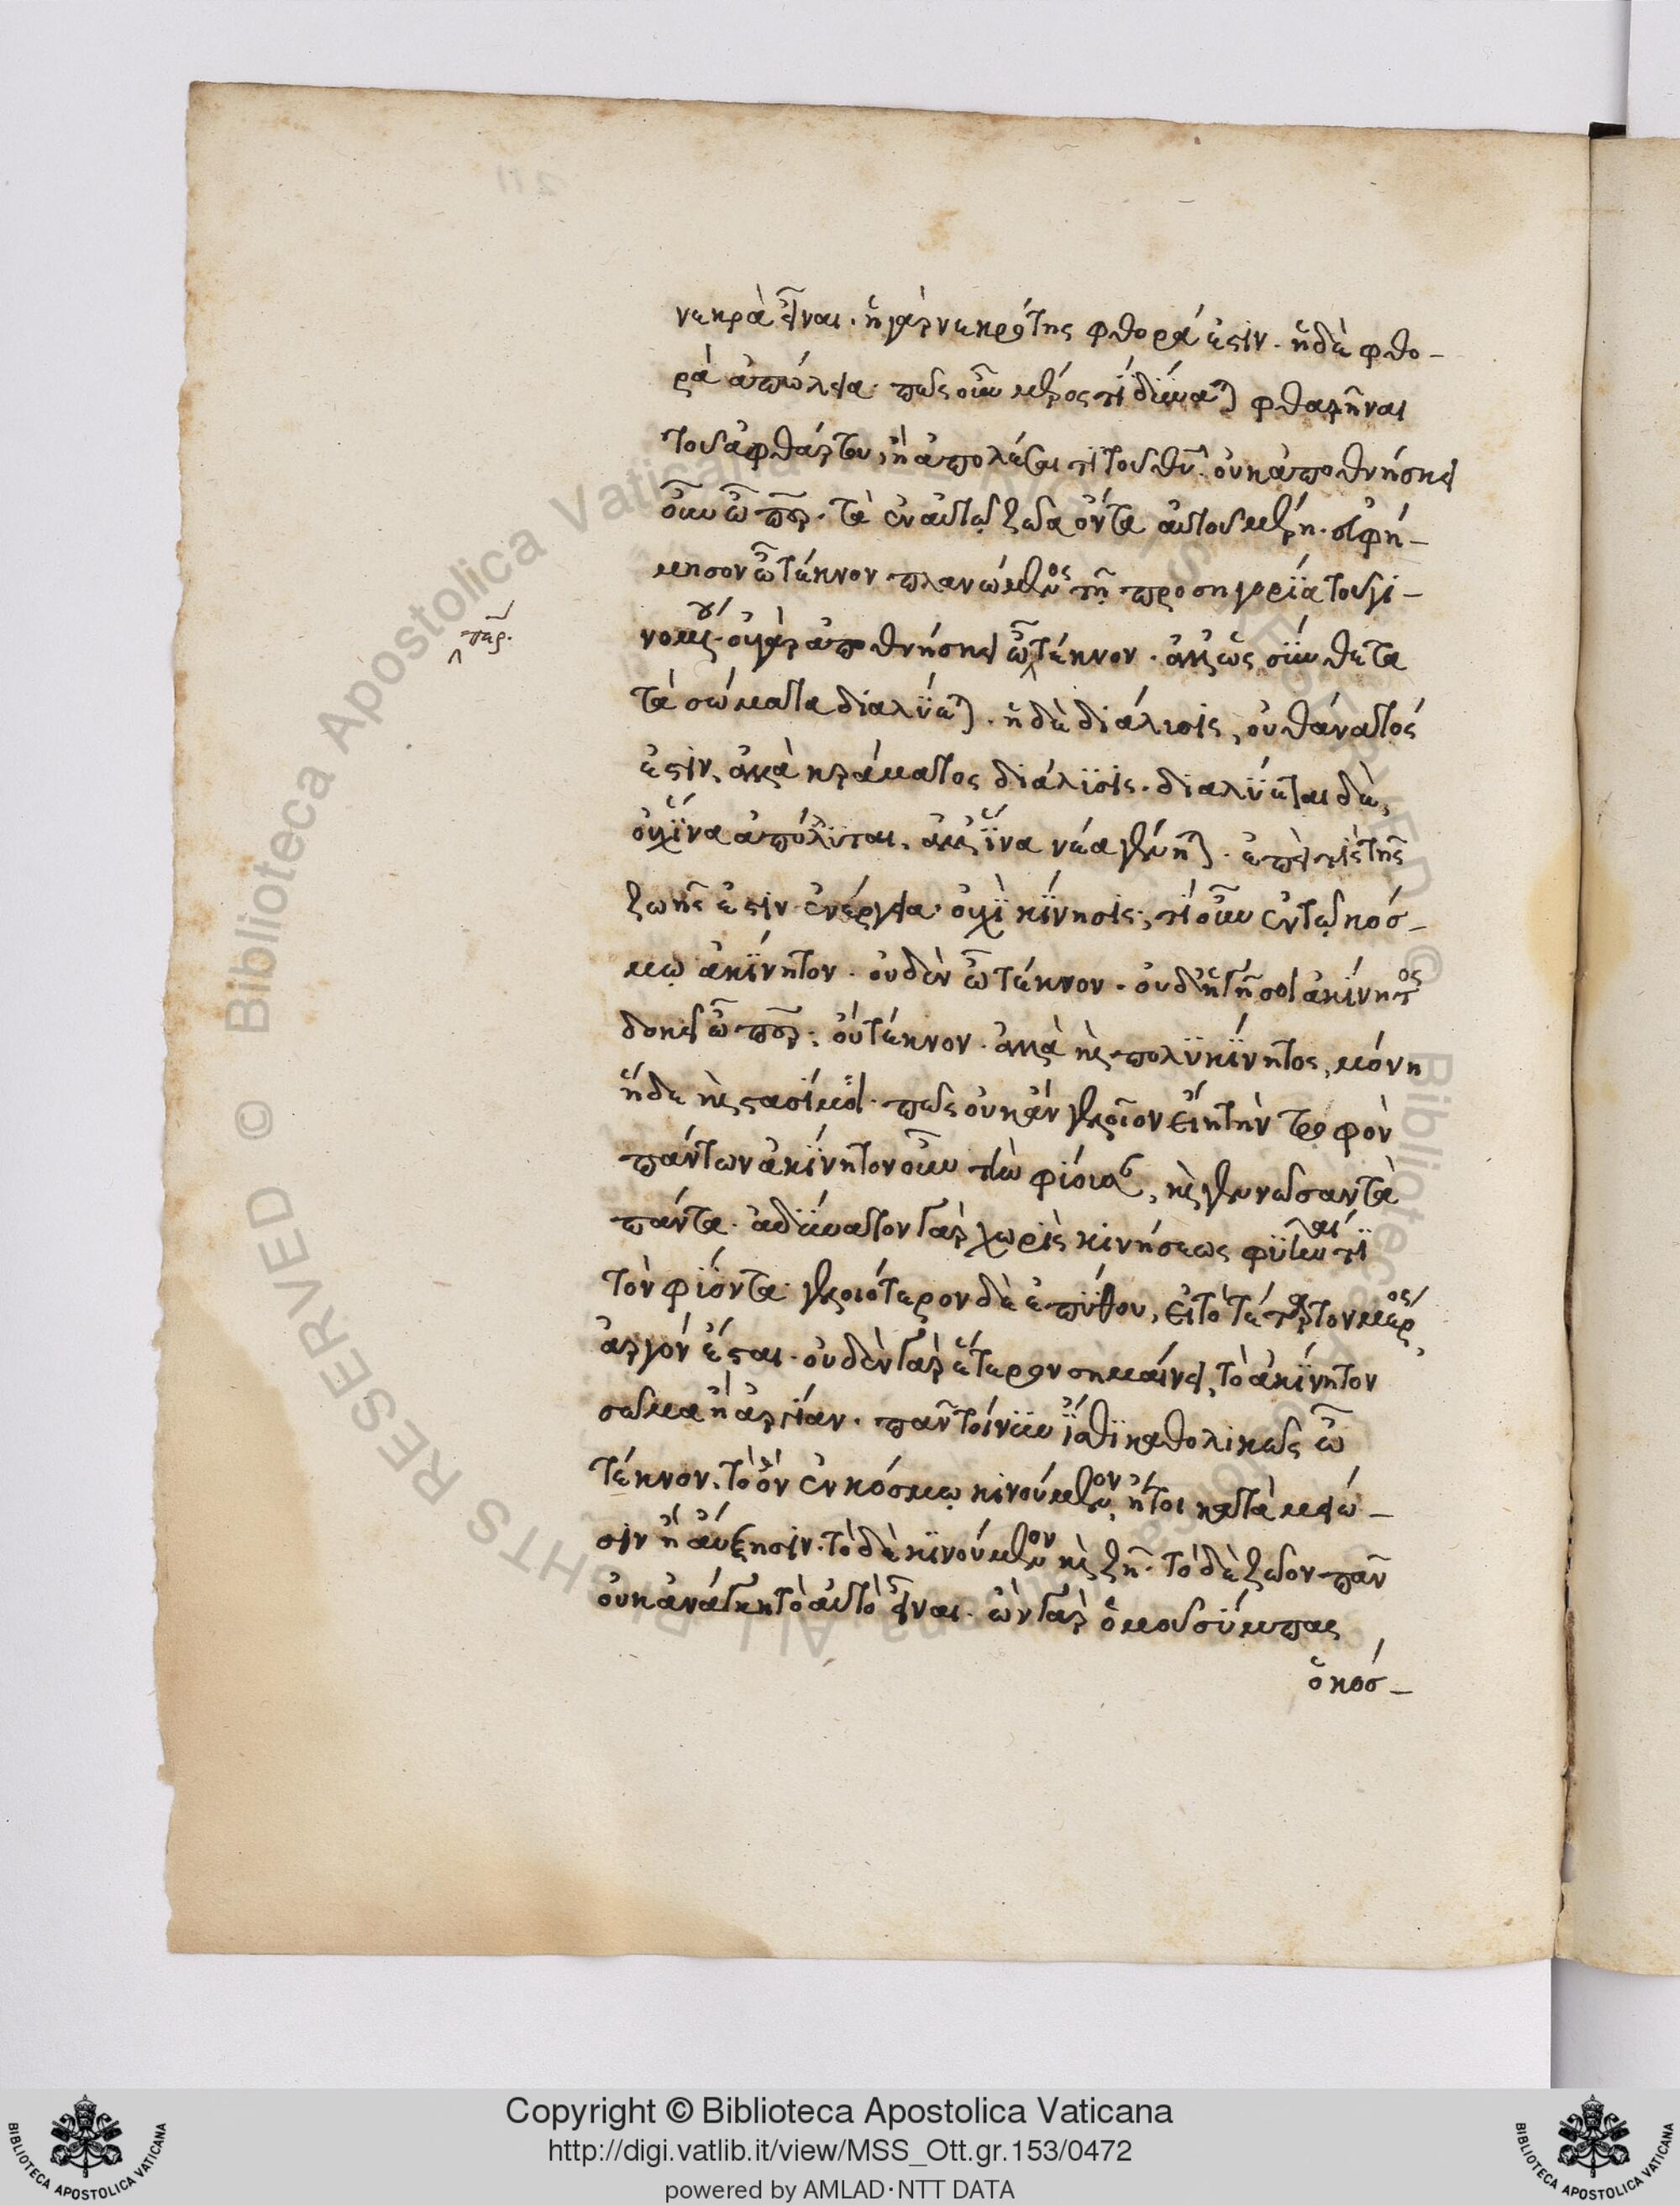 νεκρὰ εἶναι. ἡ γὰρ νεκρότης φθορά ἐστιν. ἡ δὲ φθο-
ρὰ ἀπώλεια. πῶς οὖν μέρος τί δύναται φθαρῆναι
τοῦ ἀφθάρτου, ἢ ἀπολέσαι τί τοῦ θυ. οὐκ ἀποθνήσκει
οὖν ὦ περ. τὰ ἐν αὐτῷ ζῶα ὄντα αὐτοῦ μέρη. εὐφή-
μησον ὦ τέκνον πλανώμενος τῇ προσηγορίᾳ τοῦ γι-
νομένου. οὐ γὰρ ἀποθνήσκει ὦ τέκνον. ἀλλ' ὡς σύνθετα
πὰρ.
τὰ σώματα διαλύεται. ἡ δὲ διάλυσις, οὐ θάνατός
ἐστιν, ἀλλὰ κράματος διάλυσις. διαλύεται δὲ,
οὐχ ἵνα ἀπόληται, ἀλλ' ἵνα νέα γένηται. ἐπεὶ τίς τῆς
ζωῆς ἐστιν ἐνέργεια. οὐχὶ κίνησις; τί οὖν ἐν τῷ κόσ-
μῳ ἀκίνητον. οὐδὲν ὦ τέκνον. οὐδ' ἡ γῆ σοι ἀκίνητος
δοκεῖ ὦ περ; οὐ τέκνον. ἀλλὰ καὶ πολυκίνητος, μόνη
ἥδε καὶ στασίμη. πῶς οὐκ ἂν γελοῖον εἴη τὴν τροφὸν
πάντων ἀκίνητον οὖν τὴν φύουσαν, καὶ γεννῶσαν τὰ
πάντα. ἀδύνατον γὰρ χωρὶς κινήσεως φύειν τὶ
τὸν φύοντα. γελοιότερον δὲ ἐπύθου, εἰ τὸ τέταρτον μέρος
ἀργόν ἔσται. οὐδὲν γὰρ ἕτερον σημαίνει, τὸ ἀκίνητον
σῶμα ἢ ἀργίαν. πᾶν τοίνυν ἴσθι καθολικῶς ὦ
τέκνον, τὸ ὂν ἐν κόσμῳ κινούμενον, ἤτοι κατὰ μείω-
σιν ἢ αὔξησιν. τὸ δὲ κινούμενον καὶ ζῇ. τὸ δὲ ζῶον πᾶν
οὐκ ἀνάγκη τὸ αὐτὸ εἶναι. ὢν γὰρ ὁμοῦ σύμπας
ὁ κόσ-
Copyright © Biblioteca Apostolica Vaticana
http://digi.vatlib.it/view/MSS_Ott.gr.153/0472
powered by AMLAD·NTT DATA